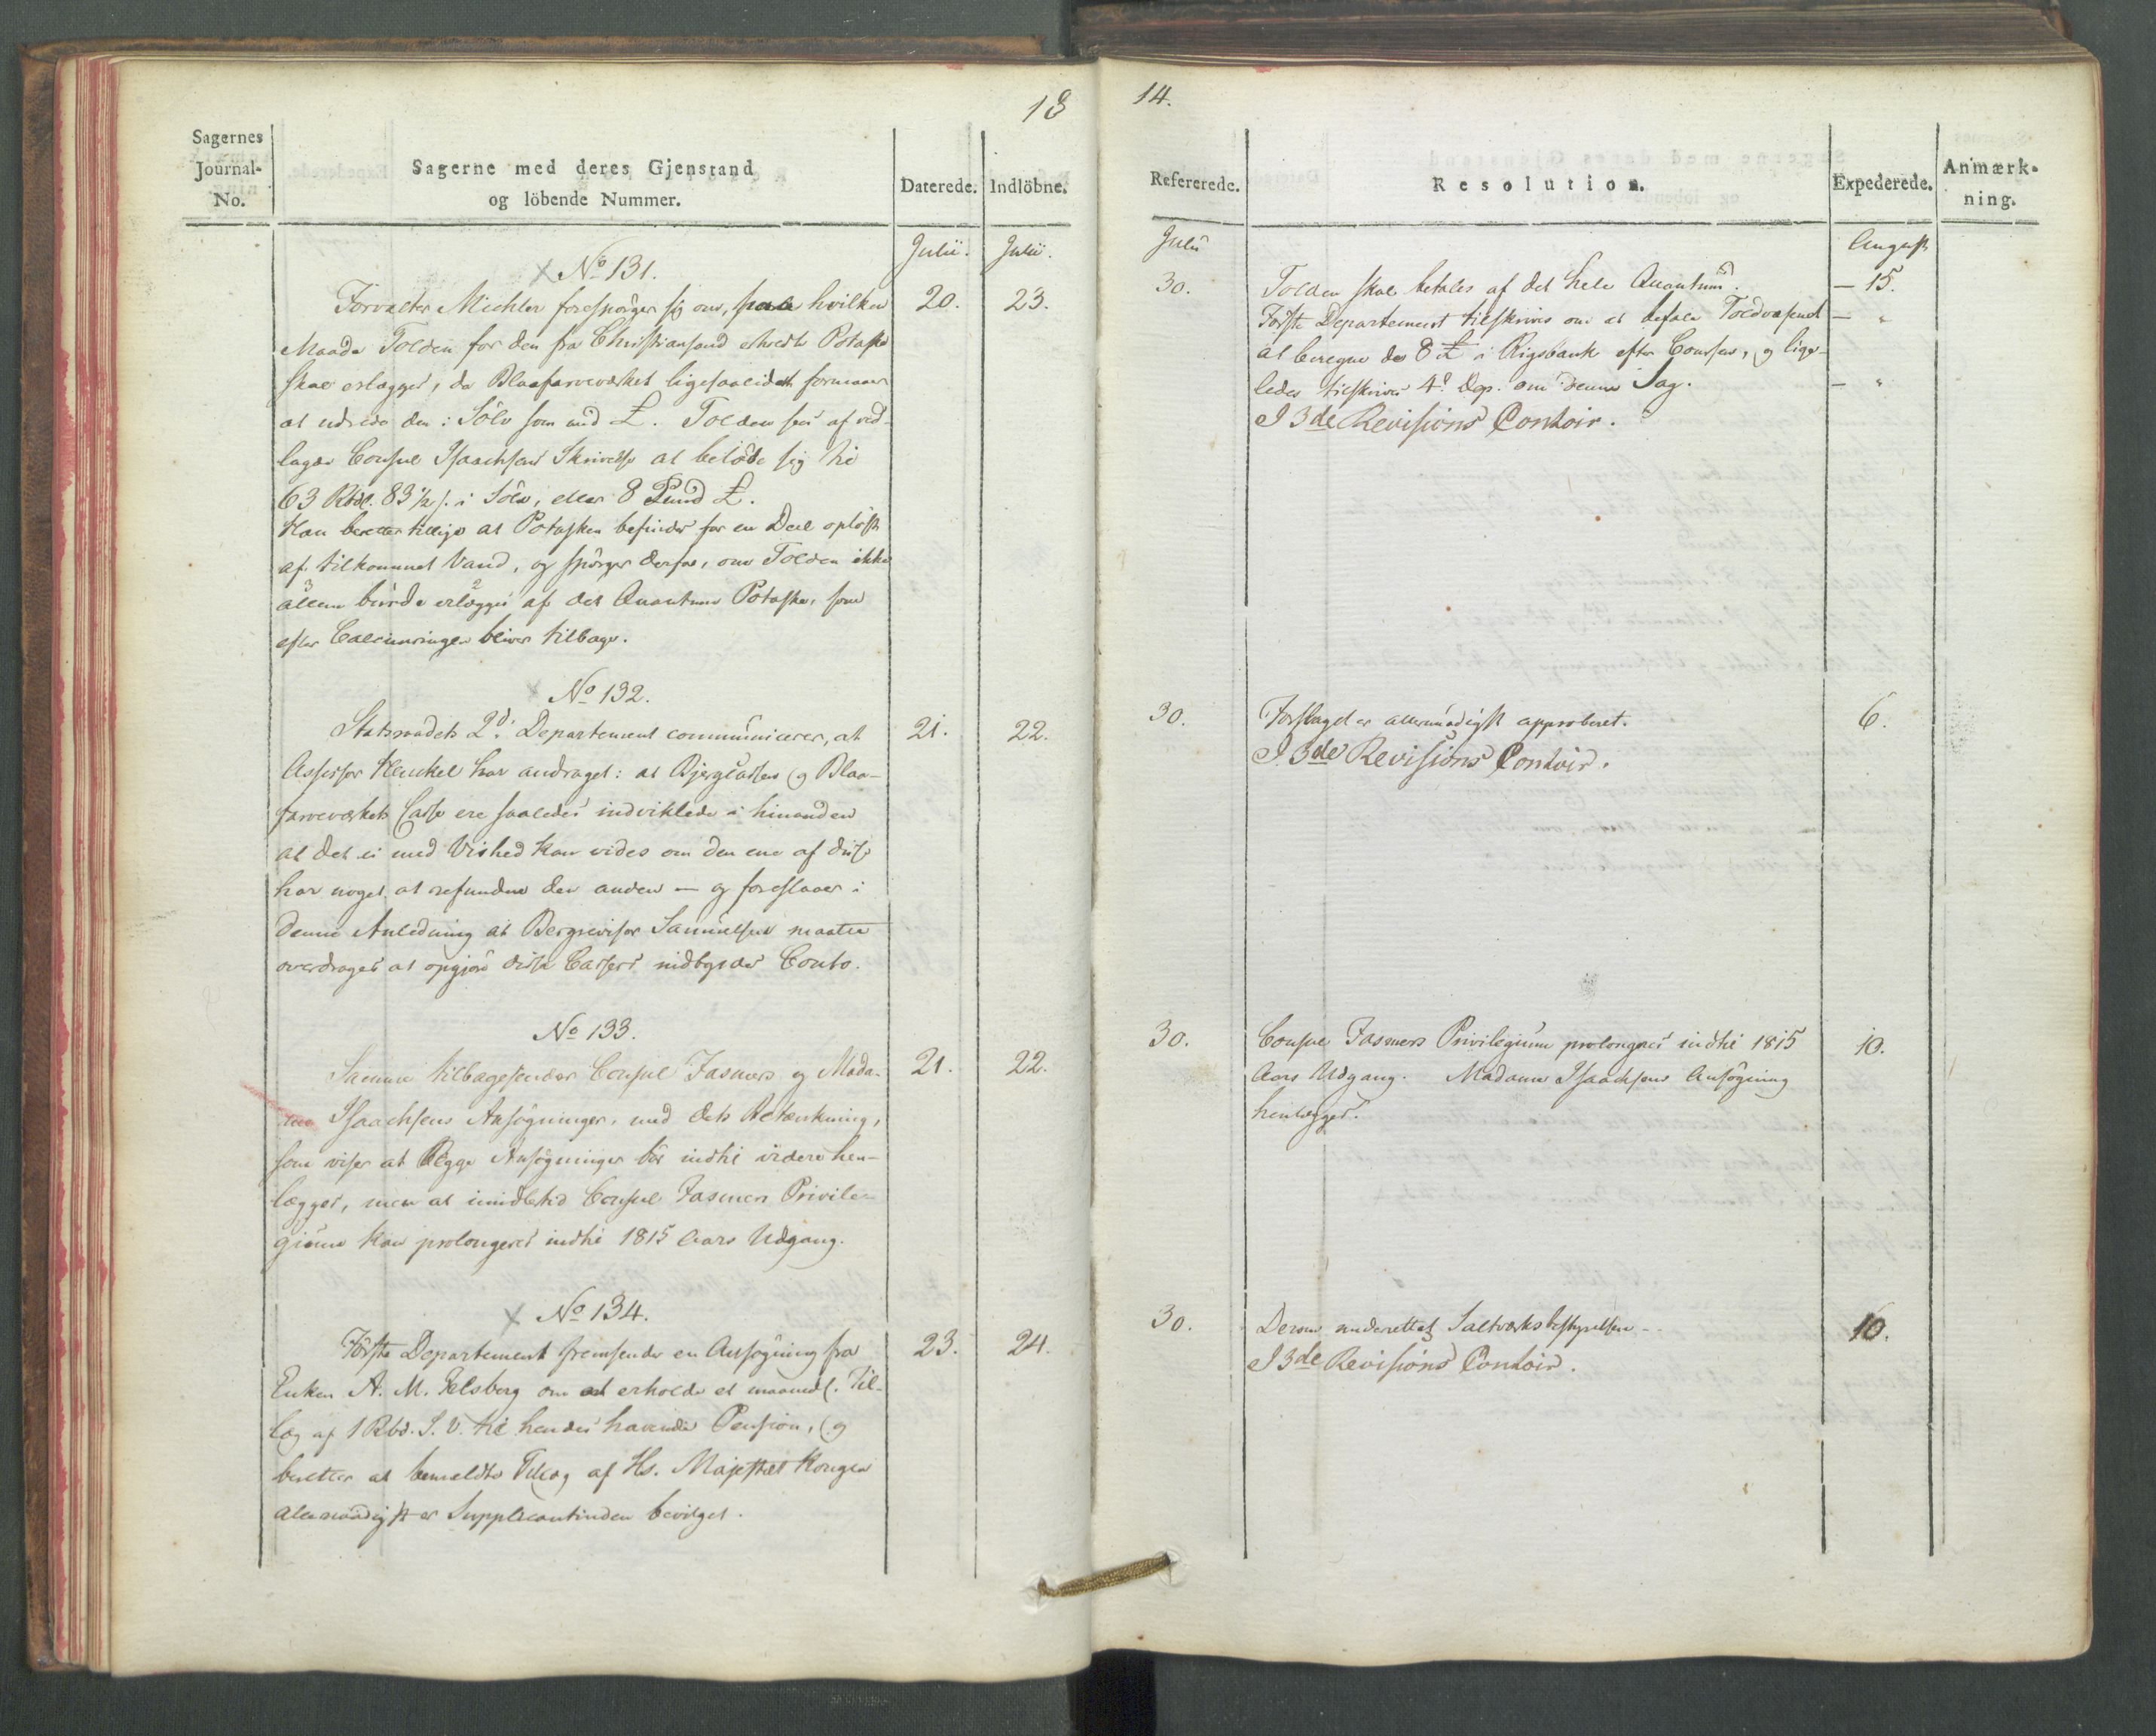 13
Sagernes
Journal-
No.
Sagerne med deres Gjenstand
og löbende Nummer.
Daterede.
Indlöbne.
Julii.
Julii.
No 131.
Forvalter Michler forespörger sig om, paa hvilken
20.
23.
Maade Tolden for den fra Christiansand Potaske
skal erlægges, da Blaafarveværket ligesaalidet formaaer
at udrede den i Sölv som med £. Tolden sees af ved-
lagde Consul Isaachsens Skrivelse at belöbe sig til
63 Rbdl. 83 1/2 s. i Sölv, eller 8 Pund £.
Han beretter tillige at Potasken befindes for en Deel oplöst
af tilkommet Vand, og spörger derfor, om Tolden ikke
3 2
alleen burde erlægges af det Quantum Potaske, som
efter Calcineringen bliver tilbage.
No 132.
Statsraadets 2d. Departement communicerer, at
21.
22.
Assessor Henckel har andraget: at Bjergcassens og Blaa-
farveværkets Casse ere saaledes indviklede i hinanden
at det ei med Vished kan vides om den ene af disse
har noget at refundere den anden — og foreslaaer i
denne Anledning at Bergrevisor Samuelsen maatte
overdrages at opgjöre disse Cassers Conto.
No 133.
Samme tilbagesender Consul Jasmers og Mada-
21.
22.
me Isaachsens Ansögninger, med dets Betænkning,
som viser at Begge Ansögninger bör indtil videre hen-
lægges, men at imidlertid Consul Jasmers Privile-
gium kan prolongeres indtil 1815 Aars Udgang.
No 134.
Förste Departement fremsender en Ansögning fra
23.
24.
Enken A. M. Felsberg om at erholde et maanedl. Til-
læg af 1 Rbd. S. V. til hendes havende Pension, og
beretter at bemeldte Tillæg af Hs. Majestæt Kongen
allernaadigst er Supplicantinden bevilget.
14.
Refererede.
Resolution.
Expederede.
Anmærk-
ning.
Julii
August
30.
Tolden skal betales af det hele Quantum.
— 15.
Förste Departement tilskrives om at befale Toldvæsenet
— "
at beregne de 8 £ i Rigsbank efter Coursen, og lige-
ledes tilskrives 4de Dep. om denne Sag.
— "
I 3de Revisions Contoir.
30.
Forslaget er allernaadigst approberet.
6.
I 3de Revisions Contoir.
30.
Consul Jasmers Privilegium prolongeres indtil 1815
10.
Aars Udgang. Madame Isaachsens Ansögning
henlægges.
30.
Derom underrettet Saltværksbestyrelsen —
16.
I 3de Revisions Contoir.